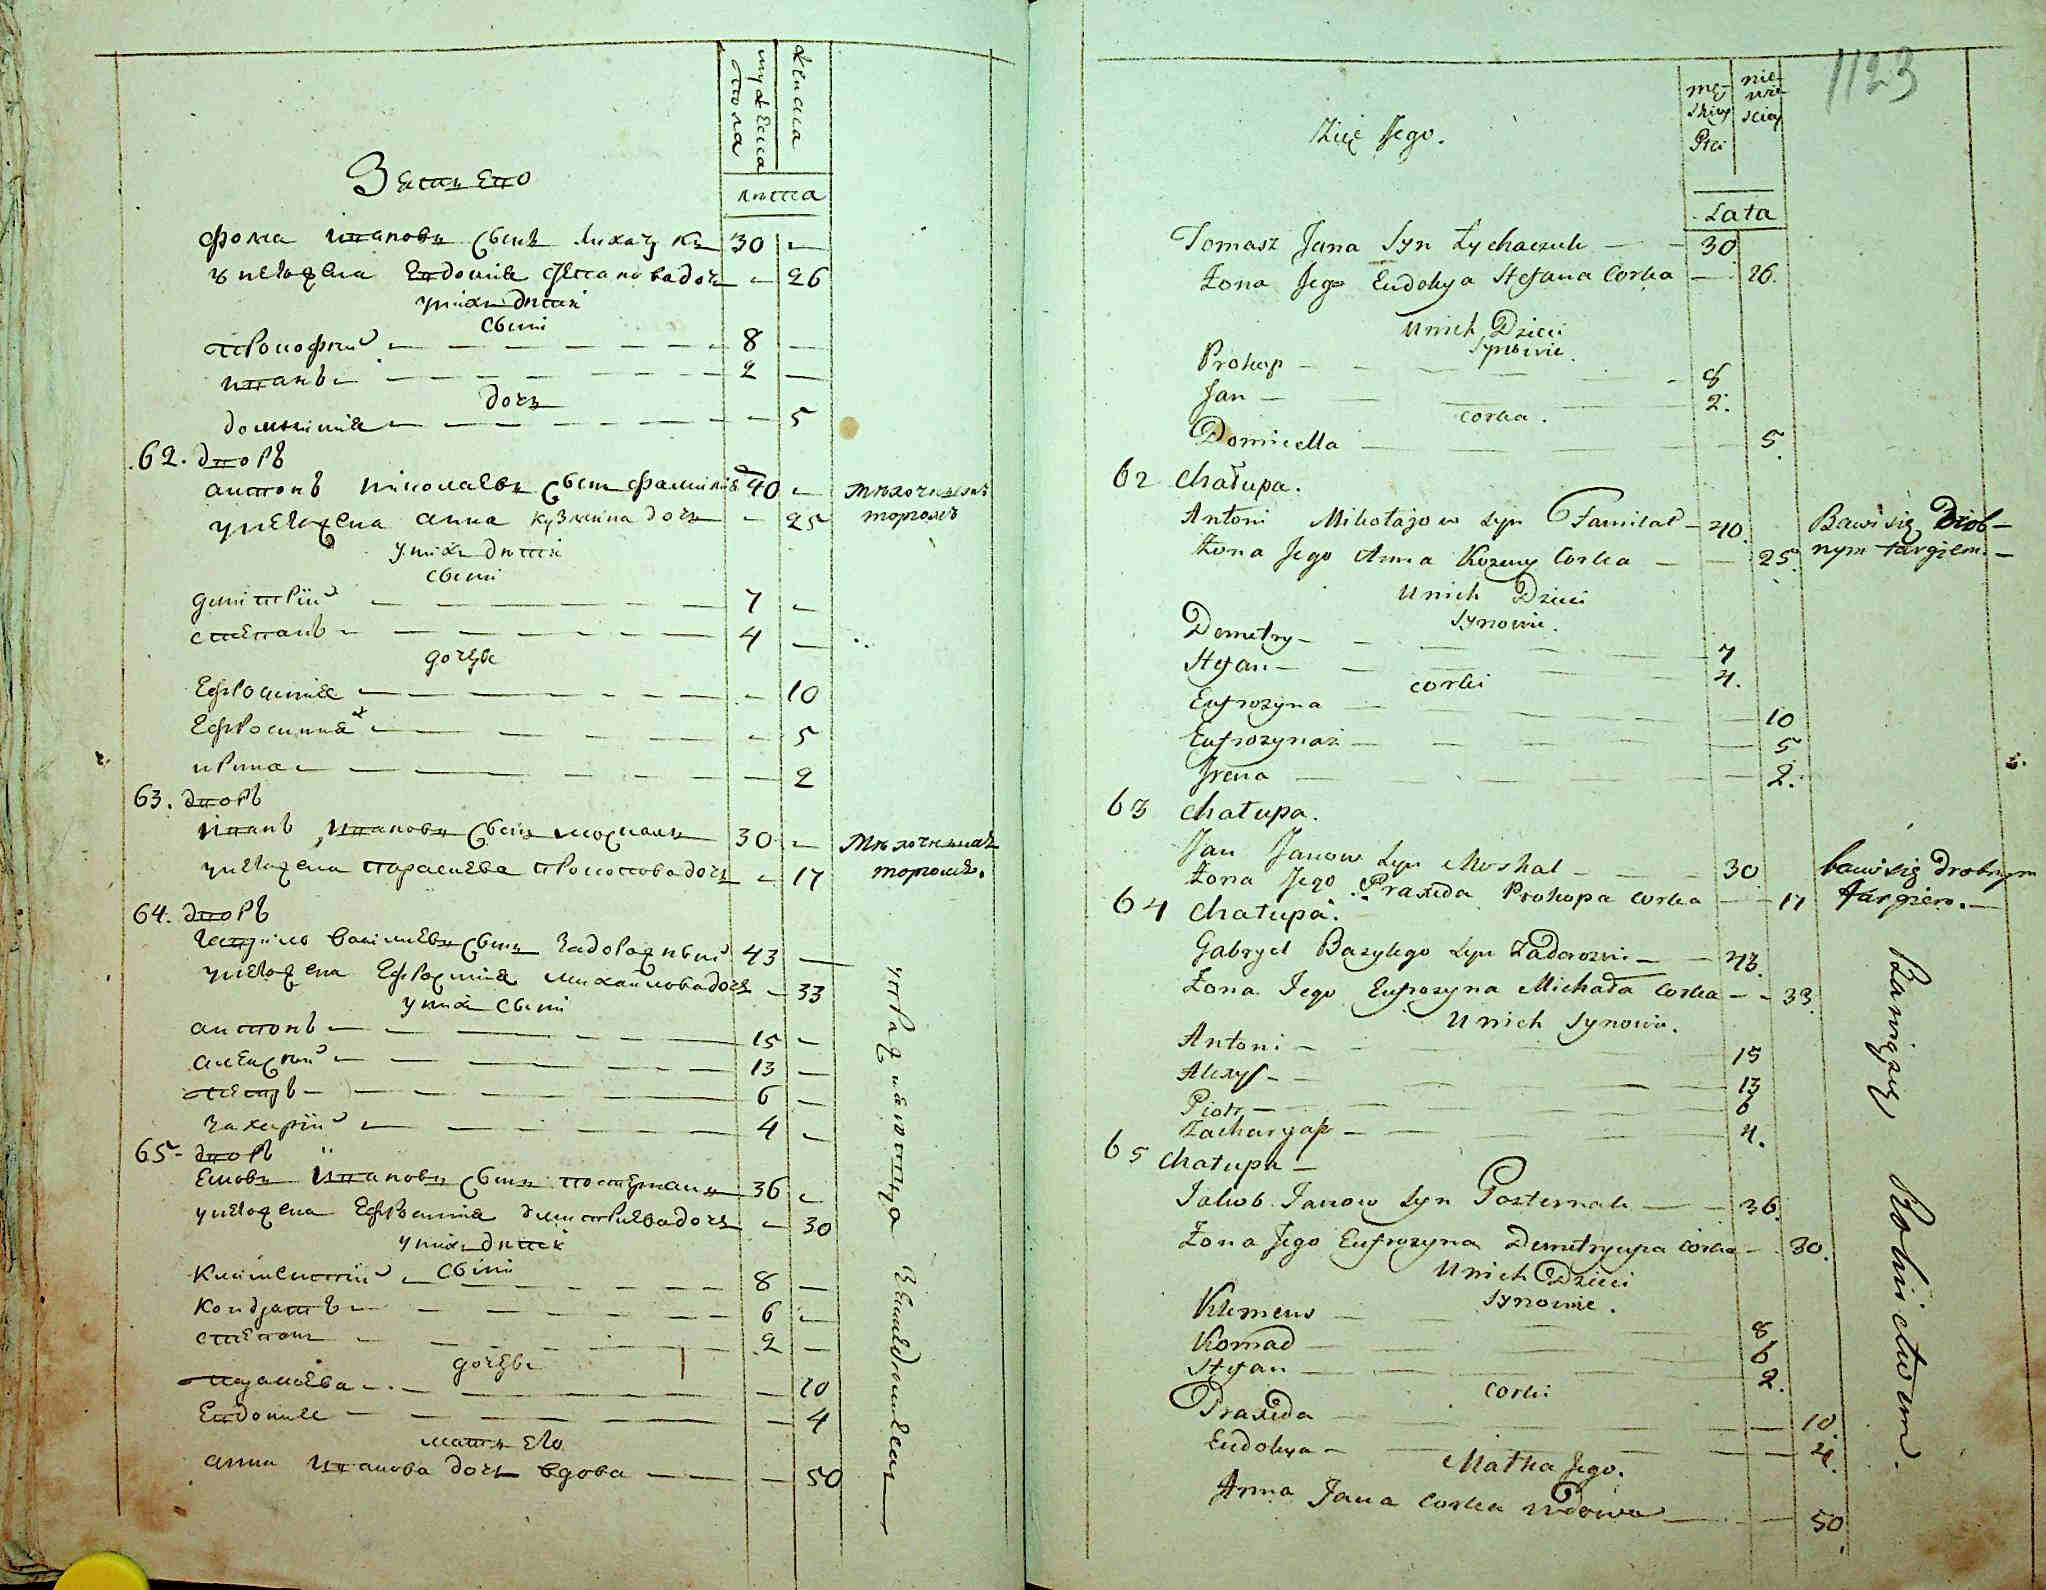 мужеска
пола
женска
лѣта
Зять его
Фома Ивановъ сынъ Лихачукъ 30 —
у него жена Евдокия Степанова дочь — 26
у нихъ дѣти
сыни
Прокофий — 8 —
Иванъ — 2 —
дочь
Домникия — — 5
62. дворъ
Антонъ Николаевъ сынъ 40 — мѣлочнымъ
у него жена Анна Кузмина дочь — 25 торгомъ
у нихъ дѣти
сыни
Димитрий — 7 —
Степанъ — 4 —
дочери
Ефросиния — — 10
Ефросиния — — 5
Ирина — — 2
63. дворъ
Иванъ Ивановъ сынъ Москаль 30 — мѣлочнымъ
у него жена Параскева Прокопова дочь — 17 торгомъ.
64. дворъ
Гаврило Васильевъ сынъ Задорожный 43 —
у него жена Ефросиния Михайлова дочь — 33
у нихъ сыни
Антонъ — 15 —
Алексий — 13 —
Петръ — 6 —
Захарий — 4 —
65. дворъ
Яковъ Ивановъ сынъ Постернакъ 36 —
у него жена Ефросиния Димитриева дочь — 30
у нихъ дѣти
сыни
Климентий — 8 —
Кондратъ — 6 —
Степанъ — 2 —
дочери
Параскева — — 10
Евдокия — — 4
мать его
Анна Иванова дочь вдова — — 50
упражняются земледелием
1123
męskiey
Płci
niewiesciey
Lata
Zięć Jego.
Tomasz Jana Syn Łychaczuk — — 30
Żona Jego Eudokya Stefana Corka — 26.
U nich Dzieci
Synowie.
Prokop — 8
Jan — 2.
Corka.
Domicella — 5.
62 Chałupa.
Antoni Mikołajow Syn Familat — 40. Bawi się Drob-
Żona Jego Anna Kozmy Corka — 25. nym targiem. —
U nich Dzieci
Synowie.
Demetry — 7
Stefan — 4.
Corki
Eufrozyna — 10
Eufrozynaż — 5
Irena — 2.
63 Chałupa.
Jan Janow Syn Moskal — 30 bawi się drobnym
Żona Jego Praxida Prokopa Corka — 17 targiem. —
64 Chałupa.
Gabryel Bazylego Syn Zadorozni — 43.
Żona Jego Eufrozyna Michała Corka — 33.
U nich Synowie.
Antoni — 15
Alexy — 13
Piotr — 6
Zacharyasz — 4.
65 Chałupa —
Jakub Janow Syn Posternak — 36.
Żona Jego Eufrozyna Demetryusza Corka — 30.
U nich Dzieci
Synowie.
Klemens — 8
Konrad — 6
Stefan — 2.
Corki
Praxida — 10.
Eudokya — 4.
Matka Jego.
Anna Jana Corka Wdowa — 50.
Bawią się Rolnictwem.